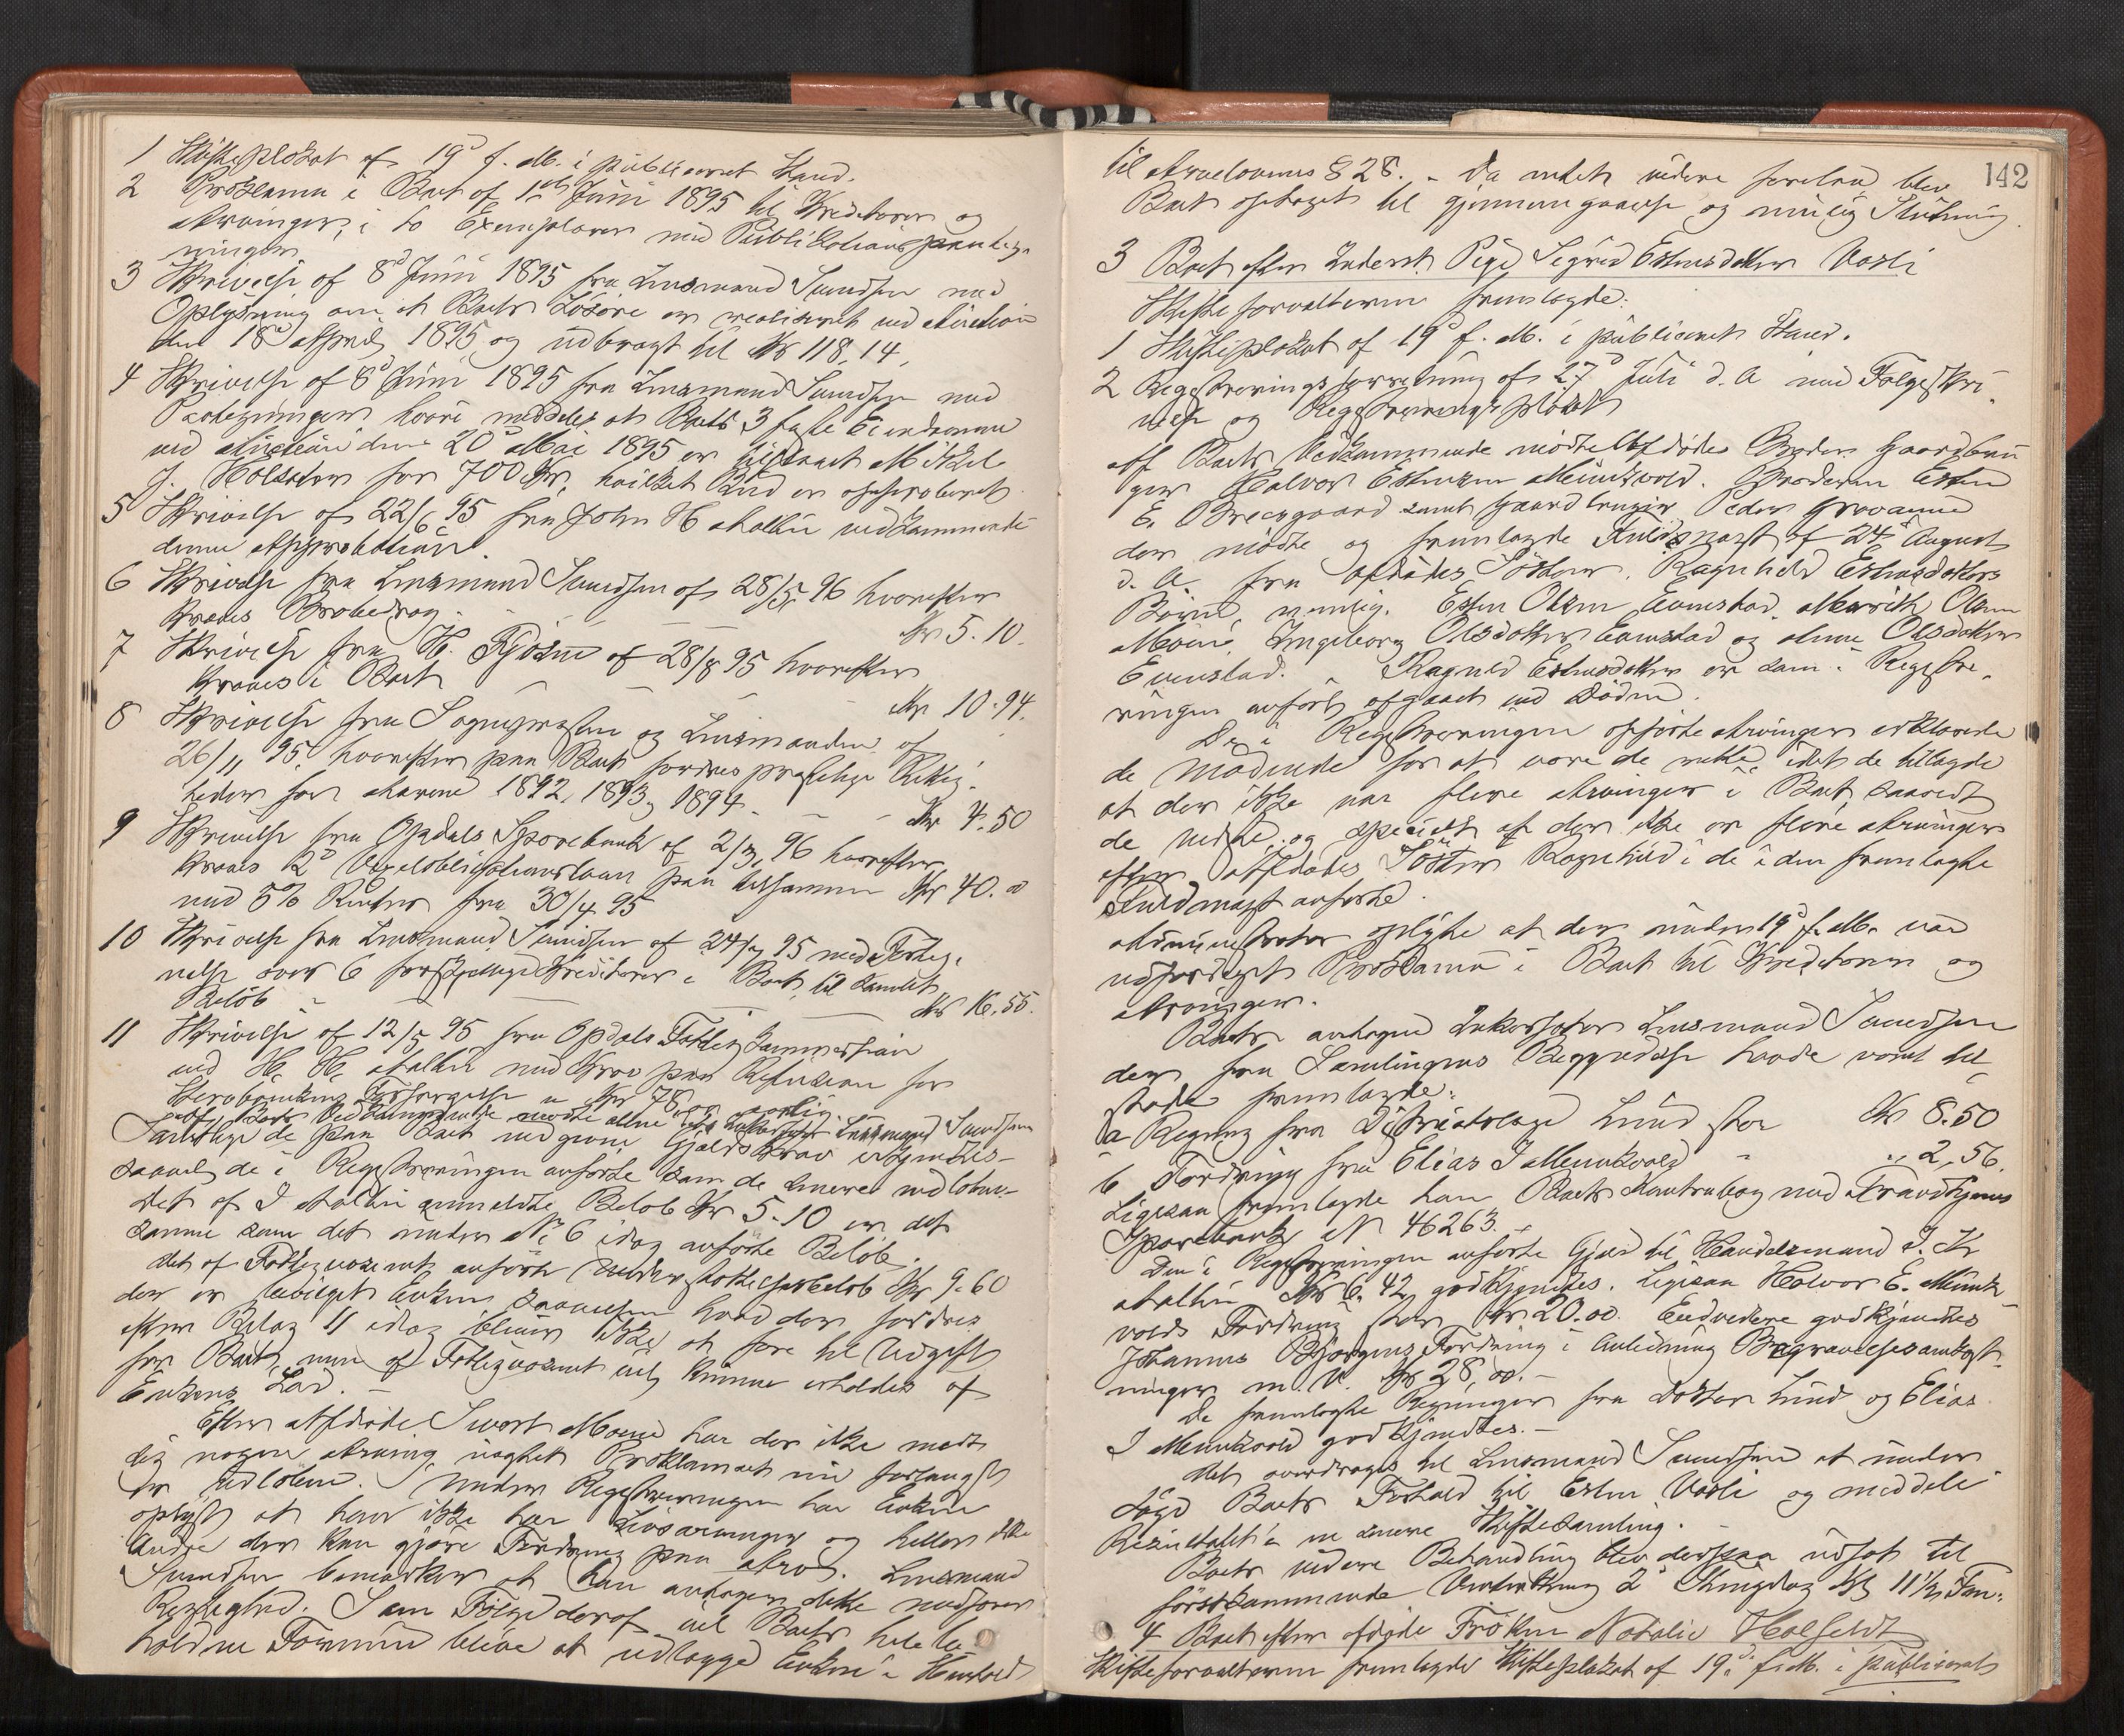 1 Skifteplakat af 19d f. M. i publiceret Stand.
2 Proklama i Boet af 1ste Juni 1895 til Kreditorer og
Arvinger, i to Exemplarer med Publikationspaateg-
ninger.
3 Skrivelse af 8d Juni 1895 fra Lensmand Sundsen med
Oplysning om at Boets Løsøre er realiseret ved Auktion
den 18d April 1895 og udbragt til Kr 118.14,
4 Skrivelse af 8d Juni 1895 fra Lensmand Sundsen med
Paategninger hvori meddeles at Boets 3 faste Eiendomme
ved Auktion den 20d Mai 1895 er tilslaaet Mikkel
J. Holseter for 700 Kr, hvilket Bud er approberet
5 Skrivelse af 22/6 95 fra John H Aalbu vedkommende
denne Approbation.
6 Skrivelse fra Lensmand Sundsen af 28/5 96 hvorefter
kræves Brobidrag. Kr 5.10.
7 Skrivelse fra H. Fjøsne af 28/8 95 hvorefter
kræves i Boet Kr 10.94.
8 Skrivelse fra Sognepresten og Lensmanden af
26/11 95. hvorefter paa Boet fordres prestelige Rettig-
heder for Aarene 1892, 1893, 1894 - Kr 4.50
9 Skrivelse fra Opdals Sparebank af 2/3 96 hvorefter
kræves 2d Vexelobligationslaan paa tilsammen Kr 40.00
med 5% Renter fra 30/4 95
10 Skrivelse fra Lensmand Sundsen af 24/7 95 med Forteg-
nelse over 6 forskjellige Kreditorer i Boet, til samlet
Beløb Kr 16.55.
11 Skrivelse af 12/5 95 fra Opdals Fattigkommission
ved H. H. Aalbu med Krav paa Refusion for
Forsørgelse Kr 78,00 aarlig.
Af Boets Vedkommende mødte alene Lensmand Sundsen
Samtlige de paa Boet udgivne Gjældskrav erkjendtes
saavel de i Registreringen anførte som de senere indkomne
Det af I Aalbu anmeldte Beløb Kr 5.10 er det
samme som det under No 6 idag anførte Beløb.
Det af Fattigvæsenet anførte Understøttelsesbeløb Kr 9.60
der er bevilget Enken saavelsom hvad der fordres
efter Bilag 11 idag bliver ikke at føre til Udgift
for Boet, men af Fattigvæsenet vil kunne erholdes af
Enkens Lod. -
Efter Afdøde Sivert Moene har der ikke meldt
sig nogen Arving uagtet Proklamaet nu forlængst
er udløbet. Under Registreringen har Enken
oplyst at han ikke har Livsarvinger og heller ikke
Andre der kan gjøre Fordring paa Arv. Lensmand
Sundsen bemærker at han antager dette medfører
Rigtighed. Som Følge deraf vil Boets hele be-
holdne Formue blive at udlægge Enken i Henhold
142
til Arvelovens § 28. - Da intet videre forelaa blev
Boet optaget til Gjennemgaaelse og mulig Slutning.
3 Boet efter Inderst Pige Sigrid Estensdatter Vasli
Skifteforvalteren fremlagde:
1 Skifteplakat af 19d f. M. i publiceret Stand.
2 Registreringsforretning af 27d Juli d. A med Følgeskri-
velse og Registreringsplakat
Af Boets Vedkommende mødte Afdødes Broder Gaardbru-
ger Halvor Estensen Munkvold. Broderen Esten
E. Brecsgaard samt Gaardbruger Peder
der mødte og fremlagde Fuldmagt af 24d August
d. A. fra Afdødes Søster, Ragnhild Estensdatters
Børn, nemlig: Esten Olsen Evenstad, Marrith Olsen
Moene, Ingeborg Olsdatter Evenstad og Anne Olsdatter
Evenstad. Ragnild Estensdatter er som i Registre-
ringen anført afgaaet ved Døden.
De i Registreringen opførte Arvinger erklærede
de Mødende for at være de rette, idet de tillagde
at der ikke var flere Arvinger i Boet, saavidt
de vidste, og specielt at der ikke er flere Arvinger
efter Afdødes Søster Ragnhild i de i den fremlagte
Fuldmagt anførte.
Administrator oplyste at der under 19d f. M. var
udfærdiget Proklama i Boet til Kreditorer og
Arvinger.
Boets antagne Inkassator Lensmand Sundsen
der fra Samlingens Begyndelse havde været til-
stede fremlagde:
a Regning fra Distriktslæge Lund stor Kr 8.50
b Fordring fra Elias J Munkvold - „ 2,56.
Ligesaa fremlagde han Boets Kontrabog med Trondhjems
Sparebank N 46263. -
Den i Registreringen anførte Gjæld til Handelsmand J. H
Aalbu Kr 6.42 godkjendtes. Ligesaa Halvor E. Munk-
volds Fordring stor Kr 20.00. Endvidere godkjendtes
Johannes Bjørgens Fordring i Anledning Begravelsesomkost-
ninger m. V. Kr 28,00. -
De fremlagte Regninger fra Doktor Lund og Elias
J Munkvold godkjendtes. -
Det overdroges til Lensmand Sundsen at under-
søge Boets Forhold til Esten Vasli og meddele
Resultatet i en senere Skiftesamling. -
Boets videre Behandling blev derpaa udsat til
førstkommende Vinterthing 2d Thingdag Kl 11½ Fm:
4 Boet efter afdøde Frøken Natalie Holfeldt
Skifteforvalteren fremlagde Skifteplakat af 19d f. M. i publiceret